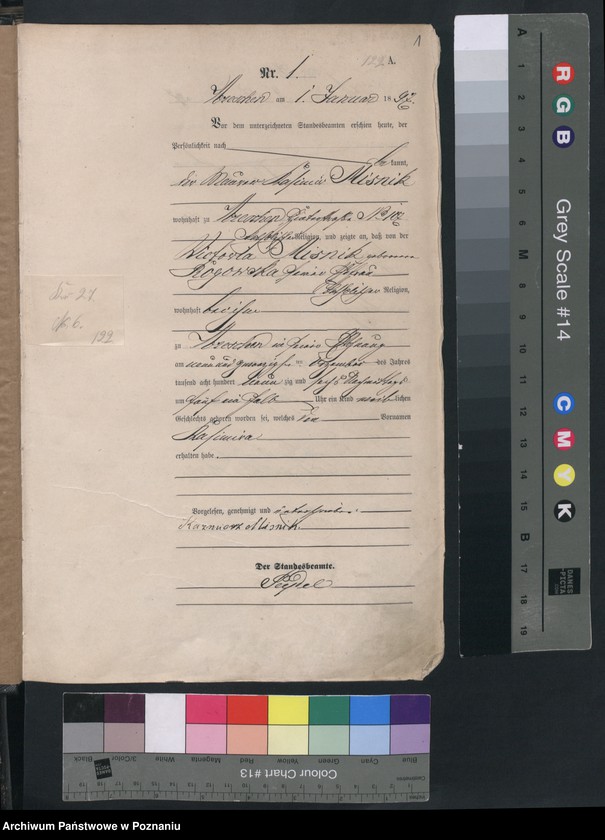 1
122 A.
Nr. 1.
Wreschen am 1. Januar 1897.
Vor dem unterzeichneten Standesbeamten erschien heute, der
Persönlichkeit nach
be kannt,
der Maurer Kasimir Misnik
wohnhaft zu Wreschen
katholischer Religion, und zeigte an, daß von der
Victoria Misnik geborenen
Rogowska seiner Ehefrau
katholischer Religion,
wohnhaft bei ihm
zu Wreschen in seiner Wohnung
am neun und zwanzigsten Dezember des Jahres
tausend acht hundert neun zig und sechs Nachmittags
um fünf ein halb Uhr ein Kind weib lichen
Geschlechts geboren worden sei, welches den Vornamen
Kasimira
erhalten habe.
Vorgelesen, genehmigt und unterschrieben.
Kazmierz Misnik
Der Standesbeamte.
122
Grey Scale #14
R
G
B
C
M
Y
K
A
1
2
3
4
5
6
M
8
9
10
11
12
13
14
15
B
17
18
19
DANES
PICTA
Colour Chart #13
Blue
Cyan
Green
Yellow
Red
Magenta
White
3/Color
Black
Centimetres
Archiwum Państwowe w Poznaniu